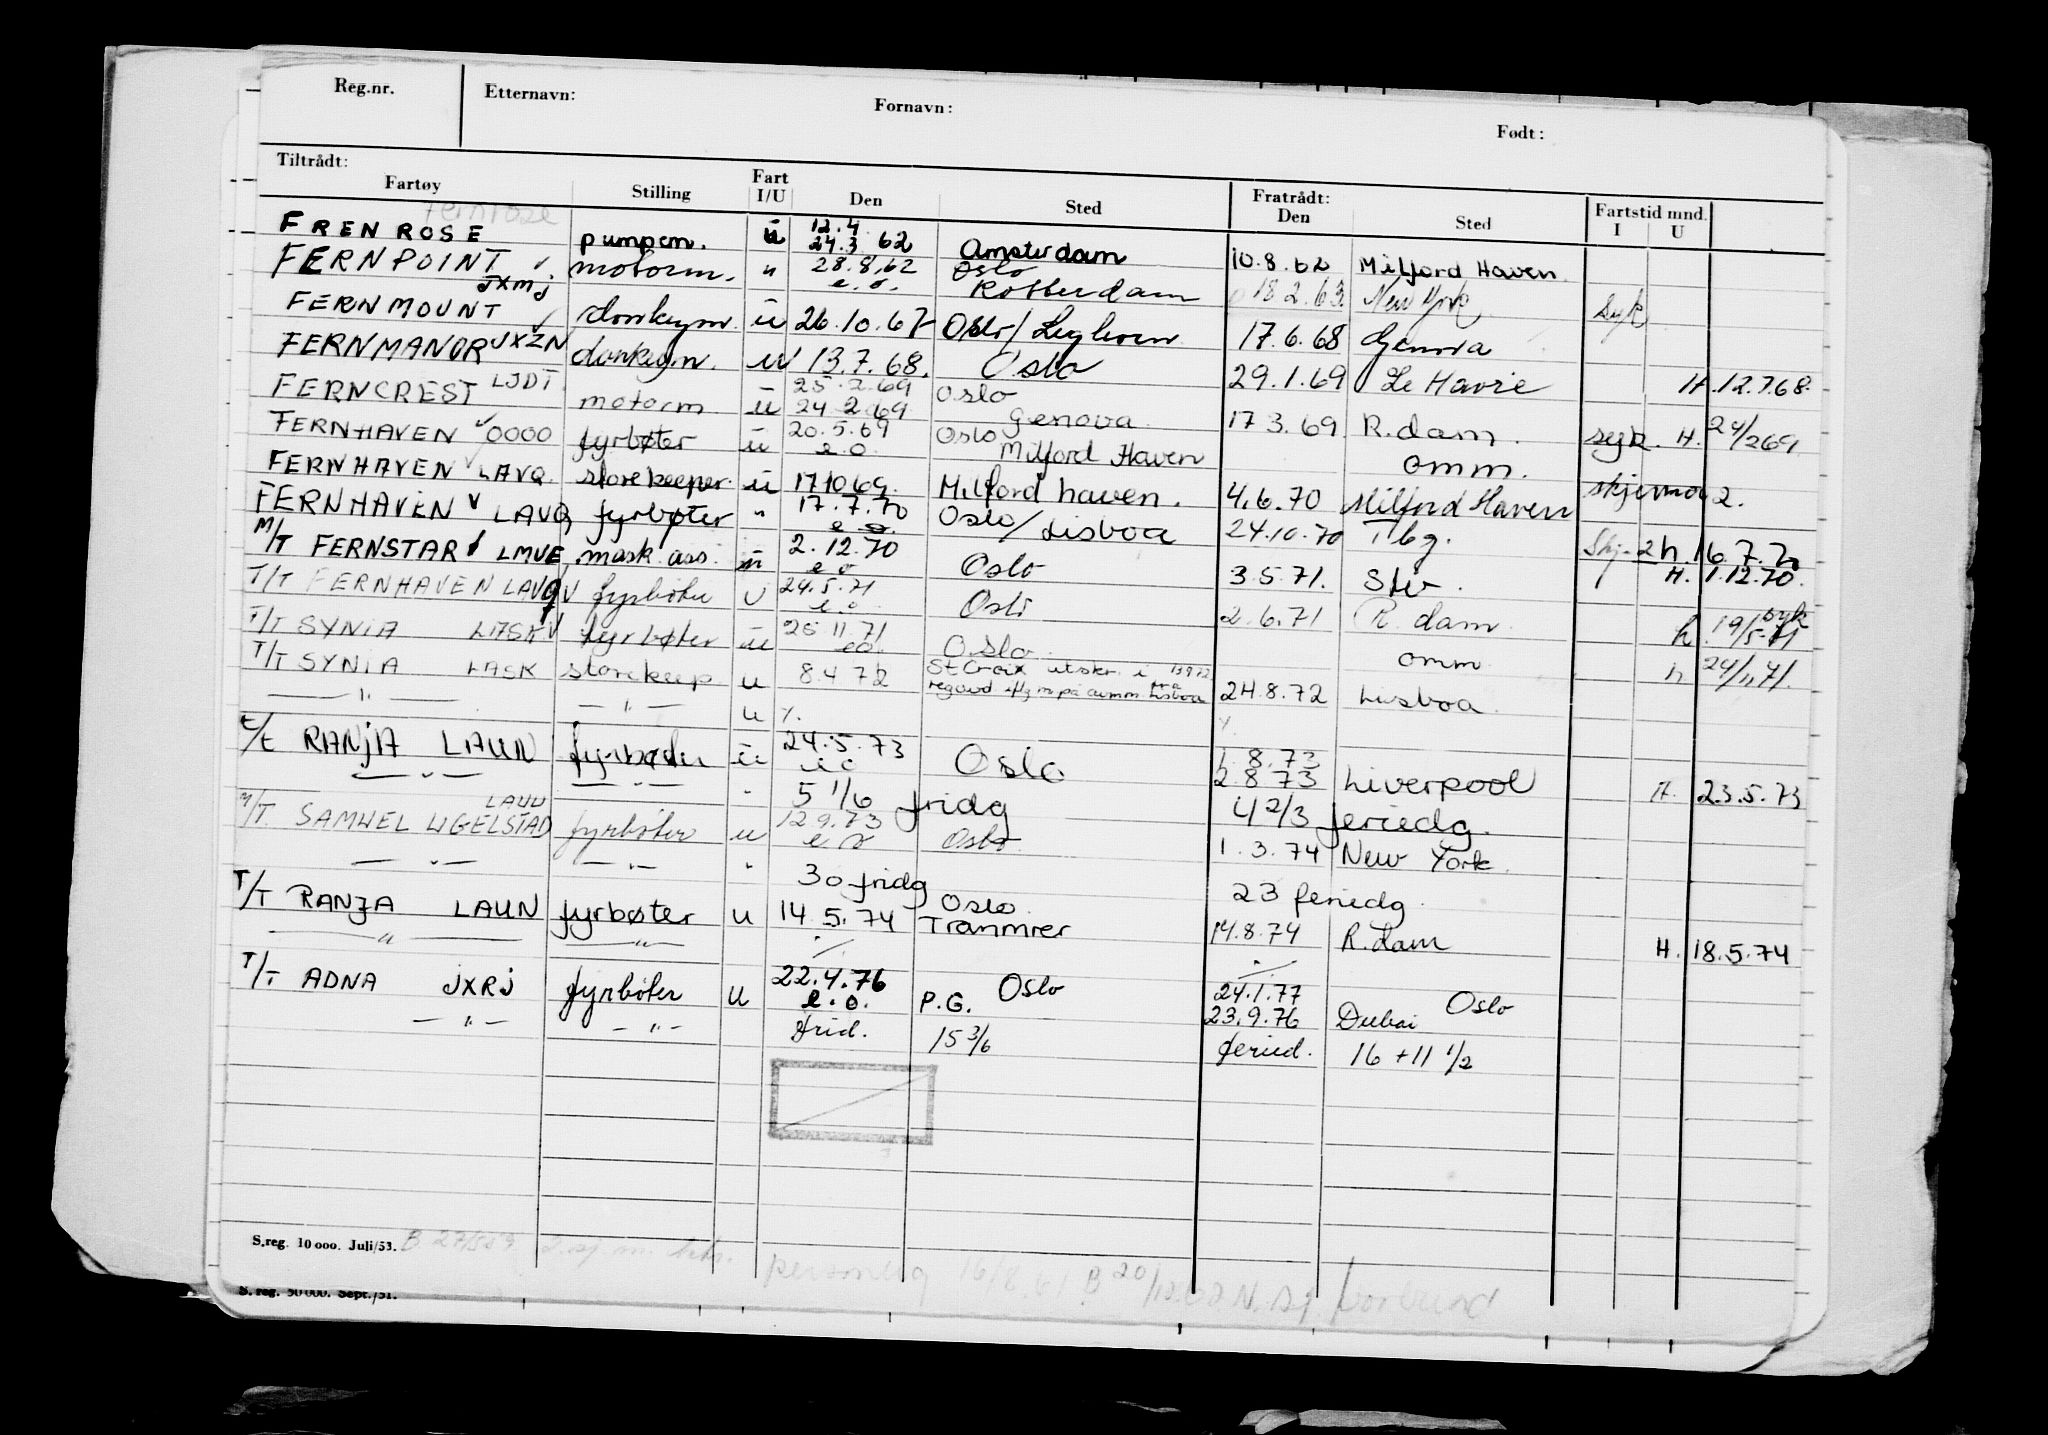 Reg.nr. Etternavn: Fornavn: Født:
Tiltrådt: Fratrådt:
Fartøy Stilling Fart I/U Den Sted Den Sted Fartstid mnd. I U
Fernrose
FRENROSE pumpem. u 12.4 24.3 62 Amsterdam 10.8.62 Milford Haven
FERNPOINT JXMJ motorm. " 28.8.62 e.o. Oslo Rotterdam 18.2.63 New York syk
FERNMOUNT donkeym. u 26.10.67 Oslo/Leghorn 17.6.68 Genova
FERNMANOR JXZN donkeym. u 13.7.68. Oslo 29.1.69 Le Havre H. 12.7.68.
FERNCREST LJDT motorm u 25.2.69 24.2.69 Oslo Genova 17 3. 69 R.dam. syk. H. 24/2 69
FERNHAVEN OOOO fyrbøter u 20.5.69 e.o. Oslo Milford Haven omm. skjema 2.
FERNHAVEN LAVQ storekeeper u 17 10 69. Milford haven. 4.6.70 Milford Haven
FERNHAVEN LAVQ fyrbøter " 17.7.70 e.o. Oslo/Lisboa 24.10.70 Tbg. Skj. 2 h 16.7.70
M/T FERNSTAR LMVE, mask.ass. u 2.12.70 e o Oslo 3.5.71. Slv. H. 1.12.70.
T/T FERNHAVEN LAVQ fyrbøter U 24.5.71 e.o Oslo 2.6.71 R.dam syk h. 19/5-71
T/T SYNIA LASK fyrbøter u 25 11.71 eo. Oslo omm h 24/11 71.
T/T SYNIA LASK storekeep u 8.4 72 St Croix utskr. i 24.8.72 Lisboa
— " — — " — u %.
T/T RANJA LAUN fyrbøter u 24.5.73 e o Oslo 1. 8. 73 2 8 73 Liverpool H. 23.5.73
— " — — " — " 5 1/6 fridg 4 2/3 feriedg.
M/T. SAMUEL UGELSTAD LAUU fyrbøter u 12 9.73 e o Oslo 1.3.74 New York.
— " — — " — " 30 fridg 23 feriedg.
T/T RANJA LAUN fyrbøter u 14.5.74 Oslo Tranmrer 14.8.74 R.dam H. 18.5.74
— " — — " —
T/T ADNA JXRJ fyrbøter u 22.4.76 e.o. P.G. Oslo 24.1.77 23.9.76 Dubai Oslo
— " — — " — frid. 15 3/6 feried. 16 + 11 1/2
S.reg. 10 000. Juli/53.
personlig
S. reg. 50 000. Sept./51.